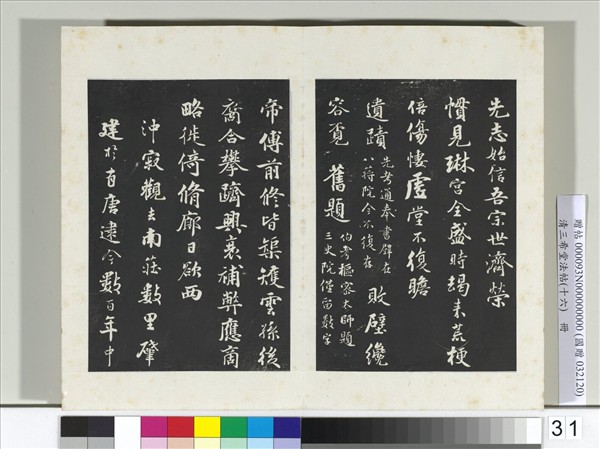 先志始信吾宗世濟榮
慣見琳宮全盛時竭來荒梗
倍傷悽虛堂不復瞻
遺蹟
先考通奉書壁在
待院今不復存
敗壁纔
容覔舊題
伯考樞密太師題
三史院僅留數字
帝傅前修皆榘矱雲孫後
裔合攀躋興衰補弊應商
略徙倚脩廊日欲西
沖寂觀去南莊數里肇
建於有唐逮今數百年中
贈帖 000093N000000000 (國贈 032120)
清三希堂法帖(十六) 冊
31